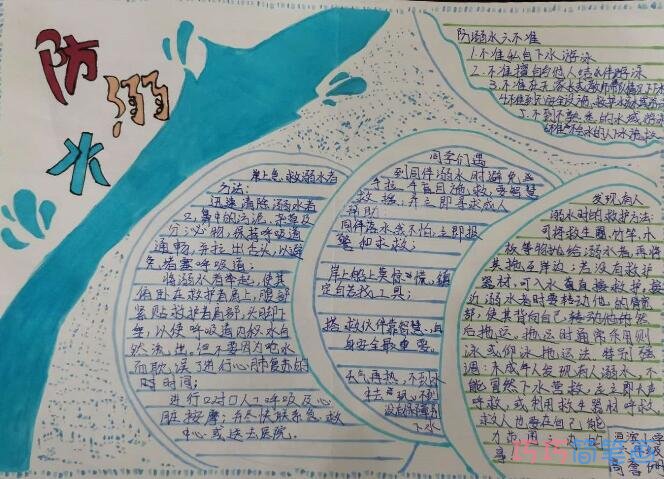 防溺水
防溺水六不准
1.不准私自下水游泳
2.不准擅自与他人结伴游泳
3.不准在无家长或教师带队情况下水
5.不到不熟悉的水域游泳
岸上急救溺水者
方法:
迅速清除溺水者
口、鼻中的污泥、杂草及
分泌物,保持呼吸道
通畅,并拉出舌头,以避
免堵塞呼吸道;
将溺水者举起,使其
俯卧在救护者肩上,腹部
紧贴救护者肩部,头脚下
垂,以使呼吸道内积水自
然流出。但不要因为呛水
而耽误了进行心肺复苏的
时间;
进行口对口人工呼吸及心
脏按摩;并尽快联系急救
中心或送去医院。
同学们遇
到同伴溺水时避免
手拉手盲目施救,要智慧
救援,并立即寻求成人
帮助。
同伴落水我不怕,立即报
警和求救;
岸上船上莫惊慌,镇
定自若找工具;
搭救伙伴靠智慧,自
身安全最重要。
天气再热,不到水
下水
发现有人
溺水时的救护方法:
可将救生圈、竹竿、木
板等物抛给溺水者,再将
其拖至岸边;若没有救护
器材,可入水直接救护。接
近溺水者时要转动他的髋
部,使其背向自己转动他然
后拖运。拖运时通常采用侧
泳或仰泳拖运法。特别强
调:未成年人发现有人溺水,不
能冒然下水营救,应立即大声
呼救,或利用救生器材呼救,
救人也要在自己能
力范围
巧巧简笔画